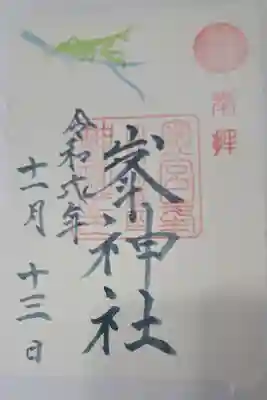 奉拝
峯神社
令和六年
十一月 十三日